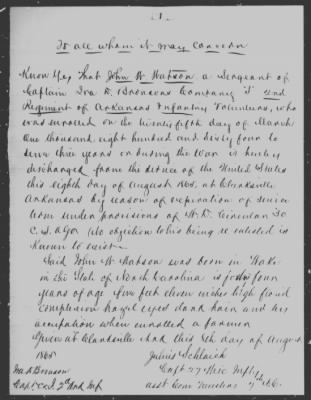 To all whom it may concern
Know Ye, That John W Watson a Sergeant of
Captain Ira D. Bronsons Company "I" 2nd
Regiment of Arkansas Infantry Volunteers, who
was enrolled on the twenty fifth day of March
One thousand eight hundred and sixty four to
serve three years or during the war is hereby
discharged from the service of the United States
this eighth day of August 1865, at Clarksville
Arkansas by reason of expiration of service
under provisions of W. D. Circular 30
C. S. No objection to his being re enlisted is
Known to exist
Said John W. Watson was born in Wake
in the State of North Carolina is forty four
years of age five feet eleven inches high florid
complexion hazel eyes dark hair and his
occupation when enrolled a farmer
Given at Clarksville Ark this 8th day of August
1865
Julius Schlaich
Ira D Bronson Capt 27 Wisc Inft
Capt Co I 2d Ark Inf asst Com Musters 7th